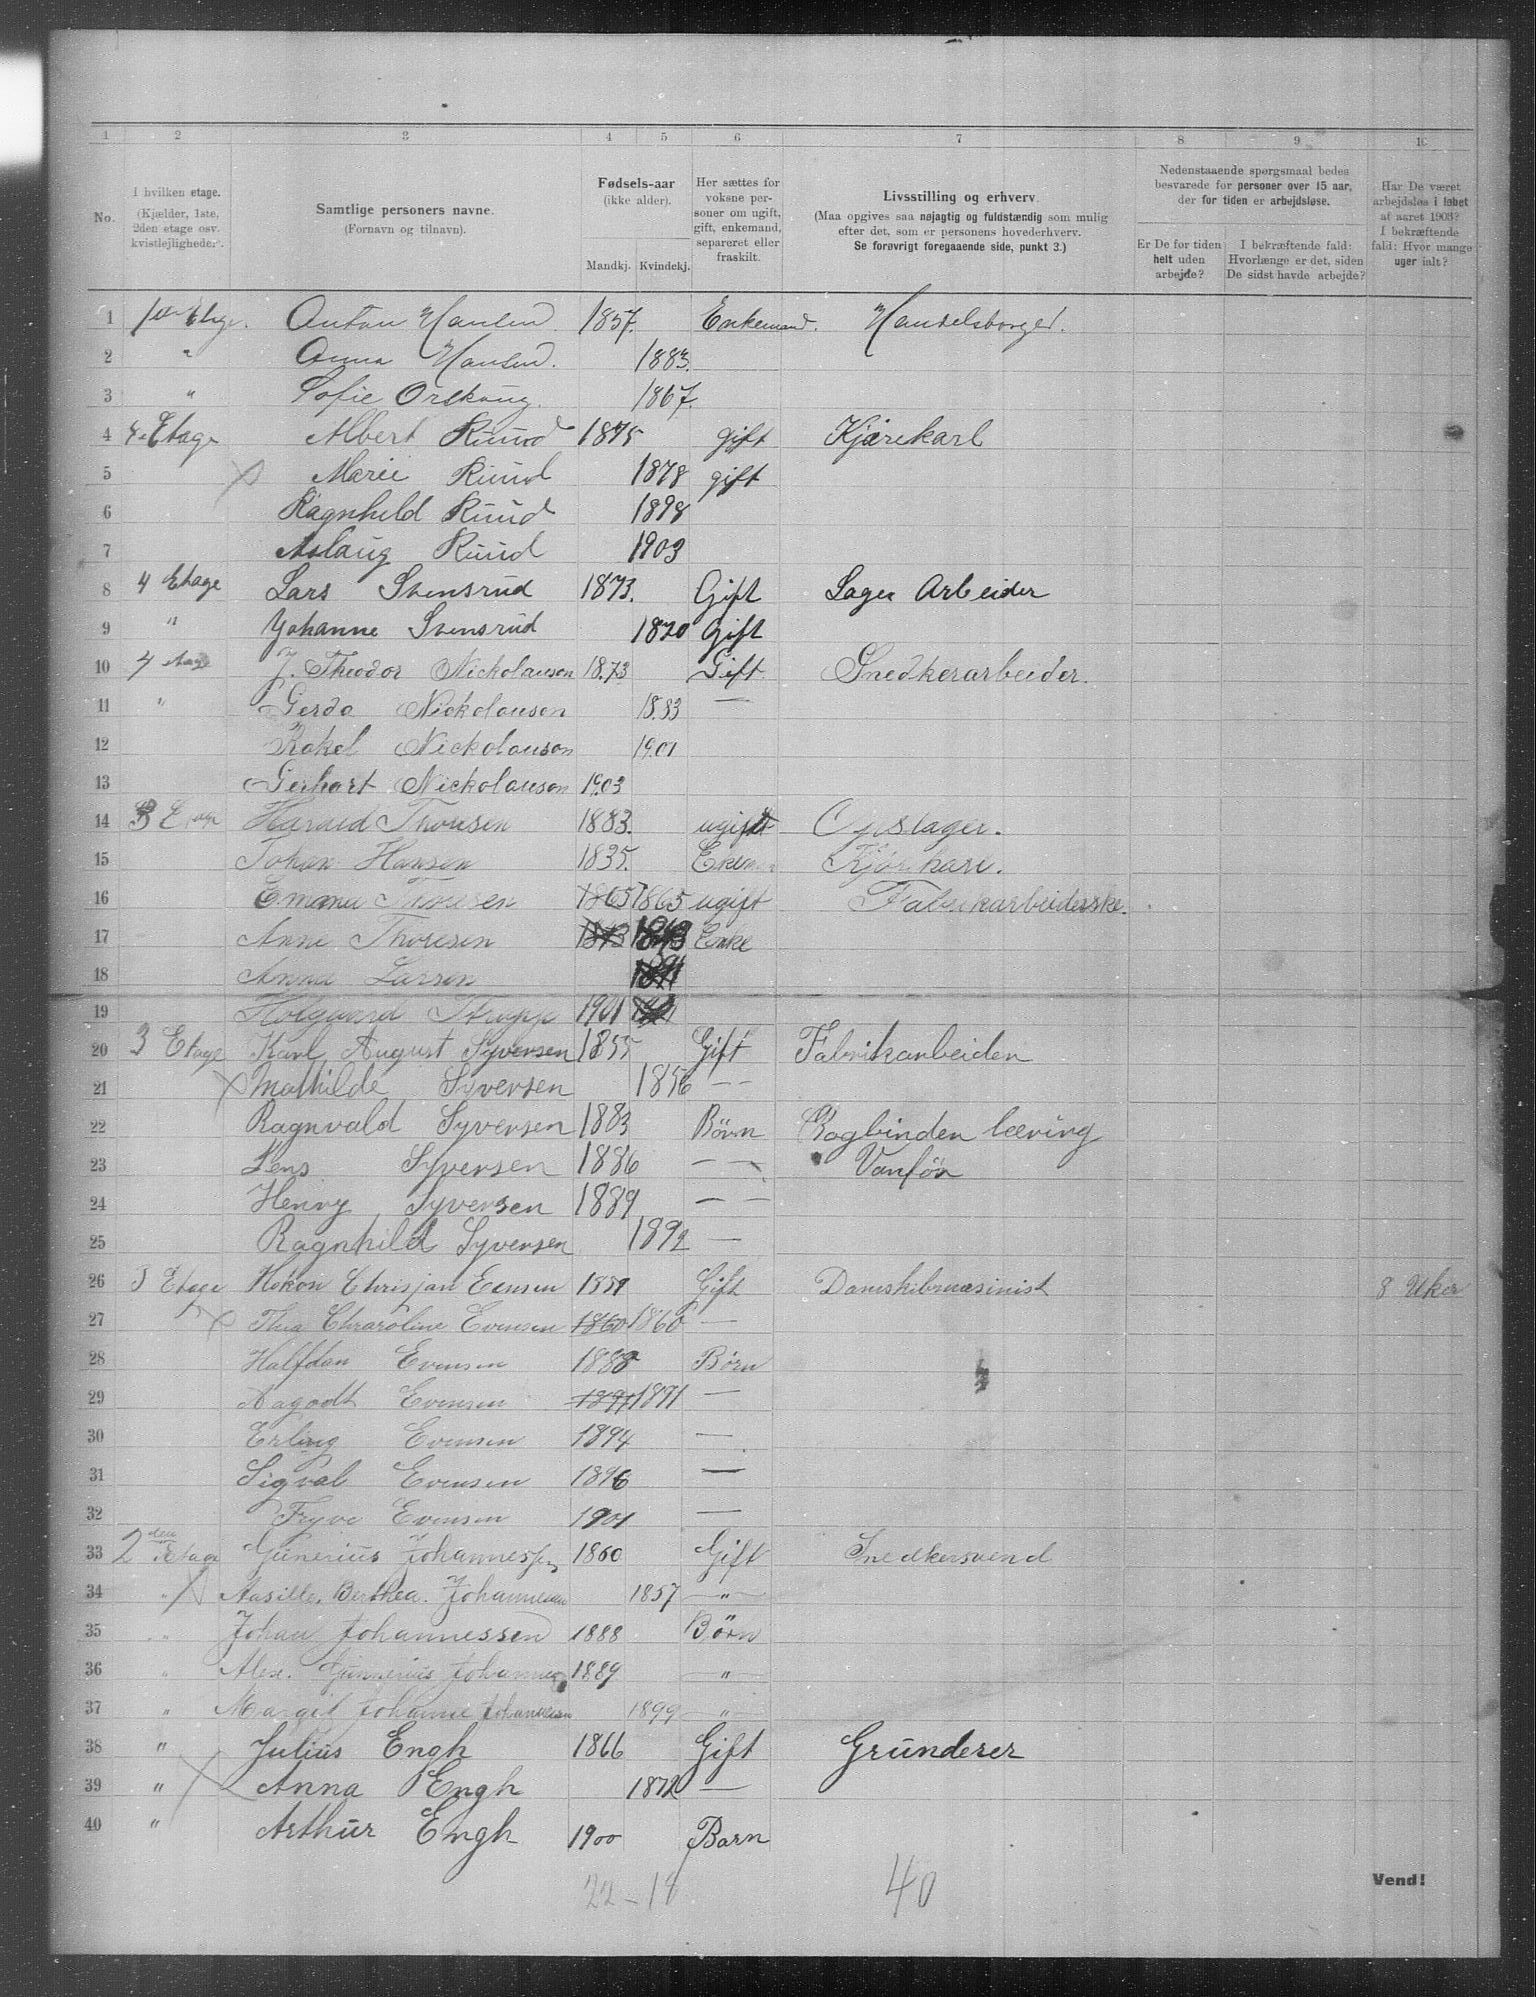 1 2 3 4 5 6 7 8 9 10
No.
I hvilken etage.
(Kjælder, 1ste,
2den etage osv.
kvistlejligheder).
Samtlige personers navne.
(Fornavn og tilnavn).
Fødsels-aar
(ikke alder).
Mandkj. Kvindekj.
Her sættes for
voksne per-
soner om ugift,
gift, enkemand,
separeret eller
fraskilt.
Livsstilling og erhverv
(Maa opgives saa nøjagtig og fuldstændig som mulig
efter det, som er personens hovederhverv.
Se forøvrigt foregaaende side, punkt 3.)
Nedenstaaende spørgsmaal bedes
besvarede for personer over 15 aar,
der for tiden er arbejdsløse.
Er De for tiden
helt uden
arbejde?
I bekræftende fald:
Hvorlænge er det, siden
De sidst havde arbejde?
Har De været
arbejdsløs i løbet
af aaret 1903?
I bekræftende
fald: Hvor mange
uger ialt?
1 1ste Etage. Anton Hansen 1857. Enkemand. Handelsborger.
2 " Anna Hansen. 1883.
3 " Sofie 1867.
4 4. Etage Albert Ruud 1875 gift Kjørekarl
5 Marie Ruud 1878 gift
6 Ragnhild Ruud 1898
7 Aslaug Ruud 1903
8 4 Etage Lars Svensrud 1873. Gift Lager Arbeider
9 " Johanne Svensrud 1870 Gift
10 4 etage J. Theodor Nickolauson 1873 Gift Snedkerarbeider.
11 " Gerda Nickolauson 1883 —
12 Rakel Nickolauson 1901
13 Gerhart Nickolauson 1903
14 3 Etage Harald Thoresen 1883. ugift Opslager.
15 Johan Hansen 1835. Kjørekarl.
16 Emma Thoresen 1865 1865 ugift Fabrikarbeiderske.
17 Anne Thoresen 1843 1843 Enke
18 Anna Larsen
19 1901
20 3 Etage Karl August Syversen 1855 Gift Fabrikarbeider
21 Mathilde Syversen 1856 — —
22 Ragnvald Syversen 1883 Børn Bogbinder læring
23 Jens Syversen 1886 — — Vanfør
24 Henry Syversen 1889 — —
25 Ragnhild Syversen 1892 —
26 3 Etage Hokon Chrisjan Evensen Gift Damskibmasinist 8 Uker
27 Thea Chraroline Evensen 1860 1860 —
28 Halfdan Evensen 1888 Børn
29 Aagodt Evensen 1891 1891 —
30 Erling Evensen 1894 —
31 Sigval Evensen 1896 —
32 Evensen 1901 —
33 2den Etage Gunerius Johannessen 1860 Gift Snedkersvend
34 " Berthea. Johannesen 1857 "
35 " Johan Johannessen 1888 Børn
36 " Alex. Gunnerius Johannes 1889 "
37 " Margit Johanne Johannesen 1899 "
38 " Julius Engh 1866 Gift Grunderer
39 " Anna Engh 1872 —
40 " Arthur Engh 1900 Barn
22 – 18 40
Vend!